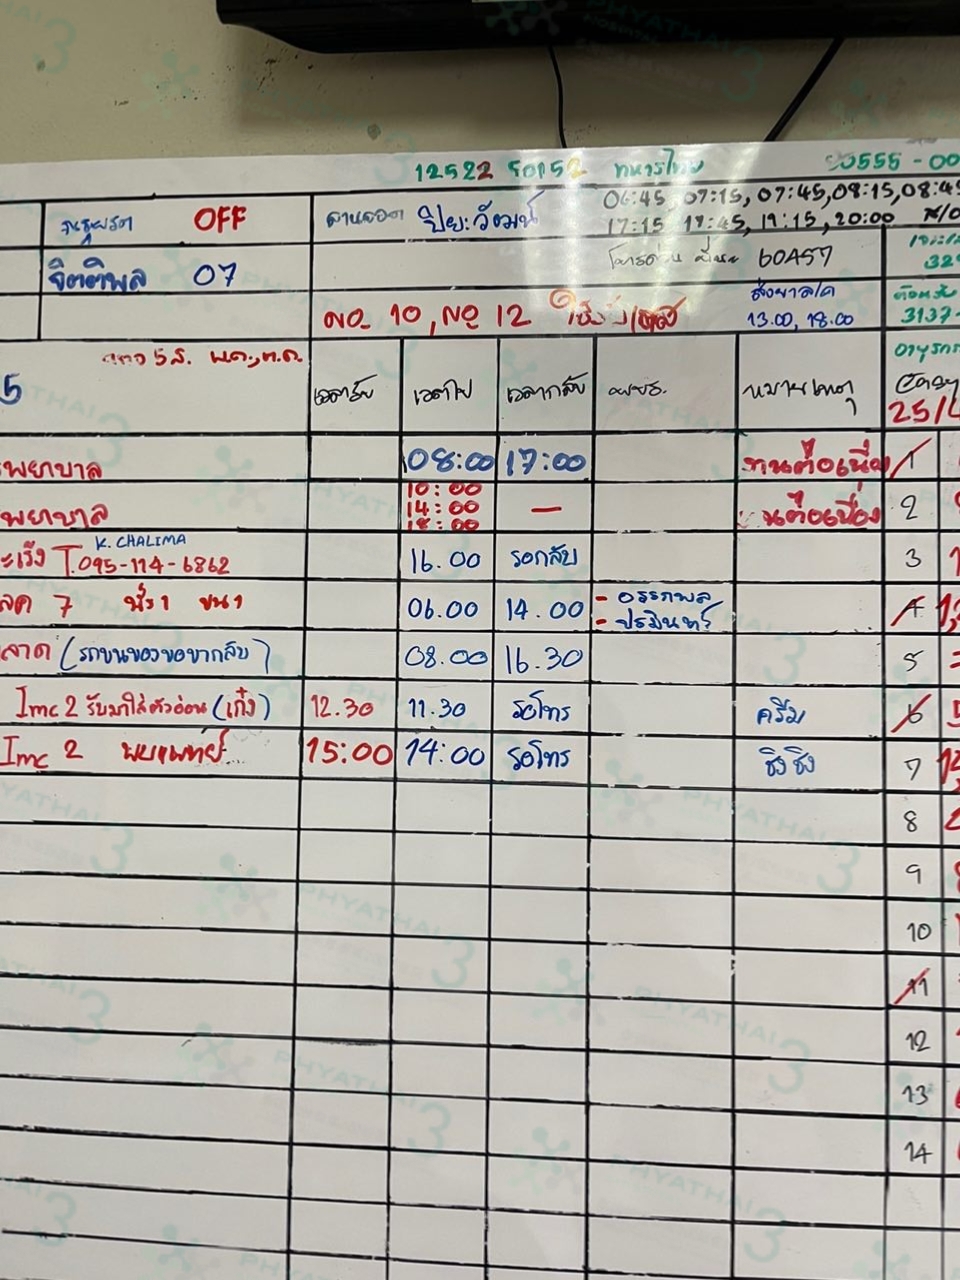 12522 50152 ทหารไทย 90555-00
OFF ลานจอด ปิยะวัฒน์ 06:45, 07:15, 07:45, 08:15, 08:4
17:15 17:45, 19:15, 20:00
จิตติพล 07 60A57
32
ส่งยาลค
NO. 10, NO 12 13.00, 18.00 3137-
5ส. พฤ.
5 เวลารับ เวลาไป เวลากลับ หมายเหตุ
25/
รพยาบาล 08:00 17:00 ทนต่อเนื่อง 1
10:00
รพยาบาล 14:00 — นต่อเนื่อง 2
18:00
K. CHALIMA
ะเร็ง T.095-114-6862 16.00 รอกลับ 3
ลค 7 นั่ง 1 ขน 1 06.00 14.00 - อรรถพล 4
- ปรมินทร์
ลาด (รถขนของขอขากลับ) 08.00 16.30 5
Imc 2 รับมาใส่ตัวอ่อน (เก๋ง) 12.30 11.30 รอโทร ครีม 6
Imc 2 พบแพทย์ 15:00 14:00 รอโทร ชิงชิง 7
8
9
10
11
12
13
14
PHYATHAI 3